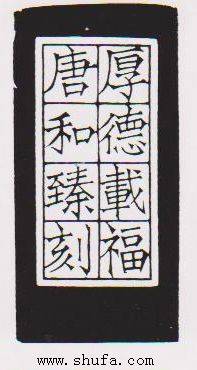 厚德載福
唐和臻刻
www.shufa.com